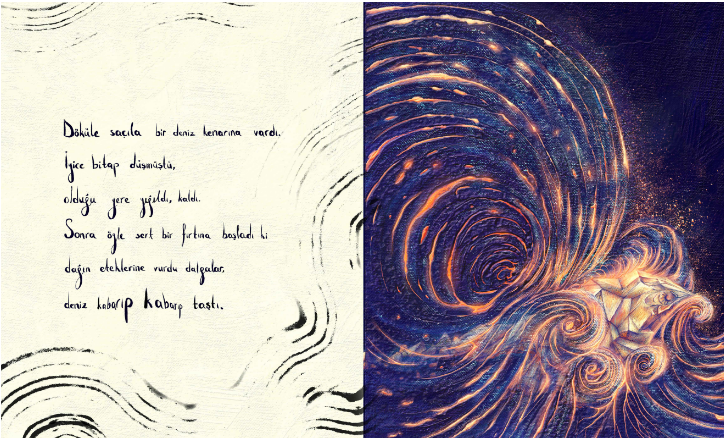 Döküle saçıla bir deniz kenarına vardı.
İyice bitap düşmüştü,
olduğu yere yığıldı, kaldı.
Sonra öyle sert bir fırtına başladı ki
dağın eteklerine vurdu dalgalar,
deniz kabarıp kabarıp taştı.